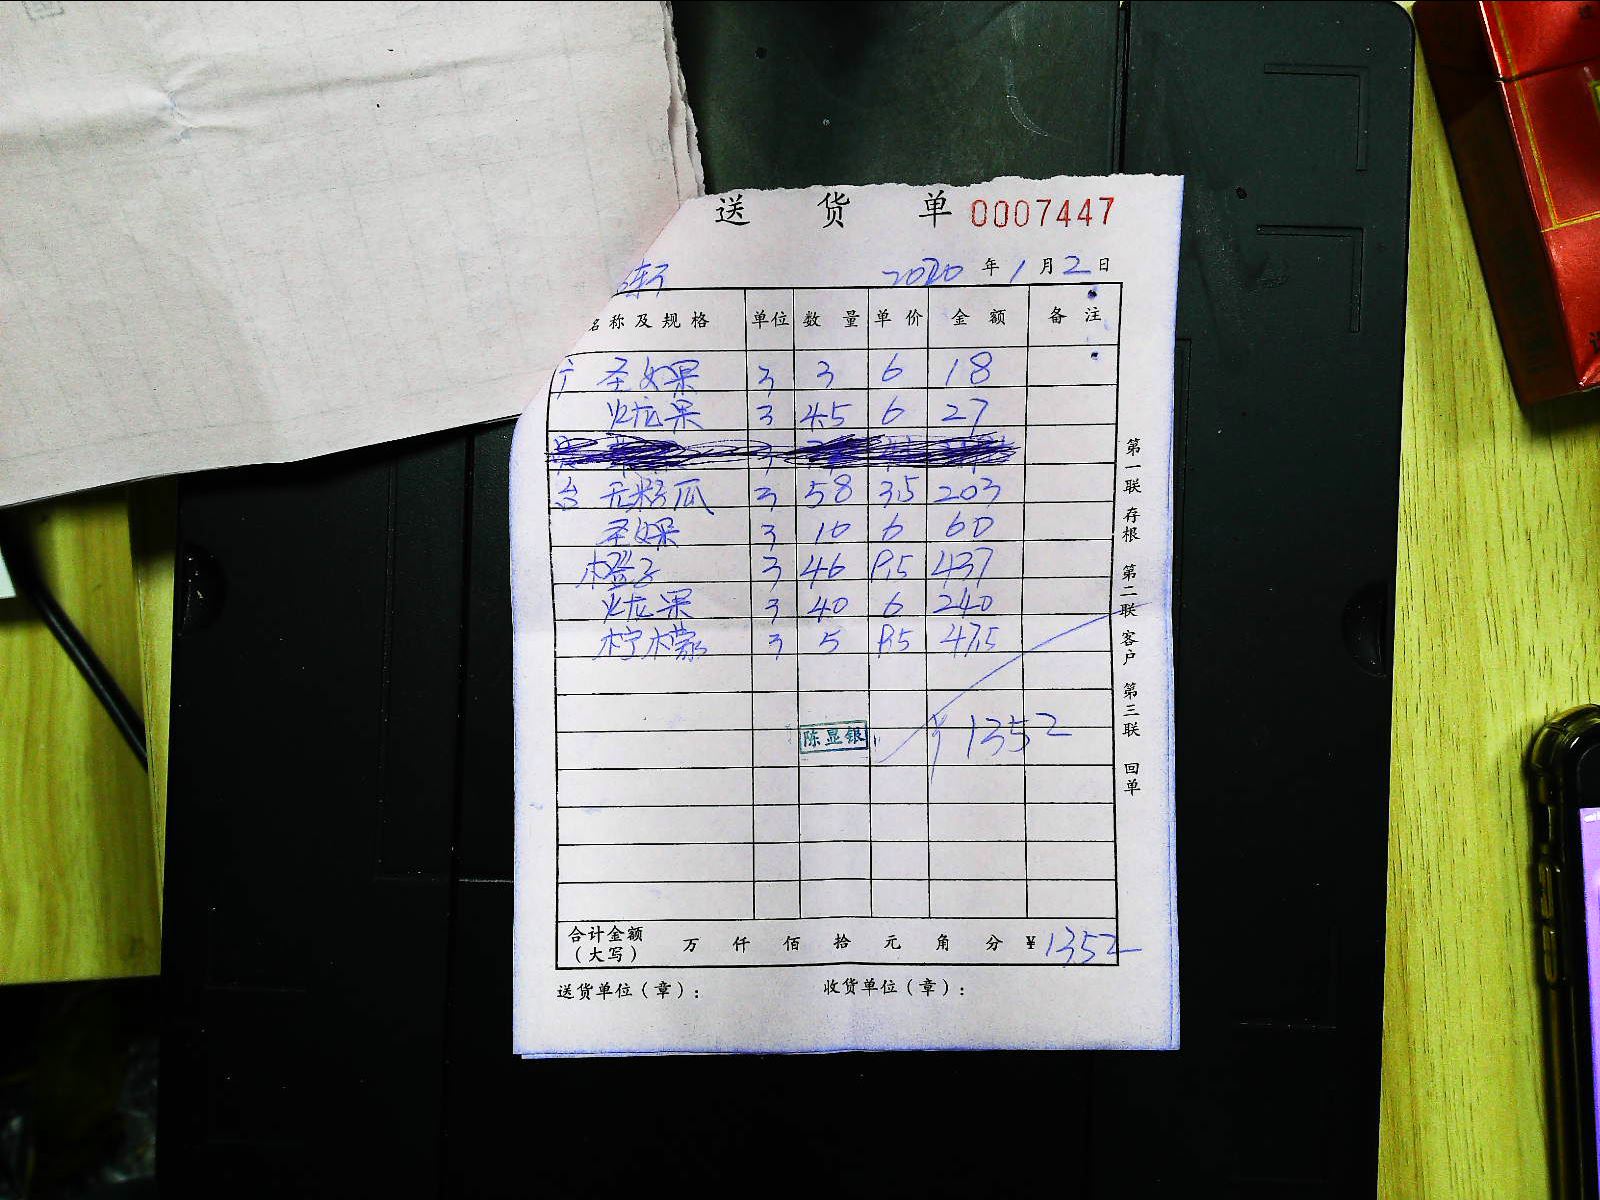 送货单 0007447
轩 2020年1月2日
名称及规格 单位 数量 单价 金额 备注
广 圣女果 3 3 6 18
火龙果 3 4.5 6 27
台 无籽瓜 3 58 3.5 203
圣女果 3 10 6 60
橙子 3 46 9.5 437
火龙果 3 40 6 240
柠檬 3 5 9.5 47.5
陈显银 ¥1352
合计金额
(大写) 万 仟 佰 拾 元 角 分 ¥1352
送货单位(章): 收货单位(章):
第一联 存根 第二联 客户 第三联 回单